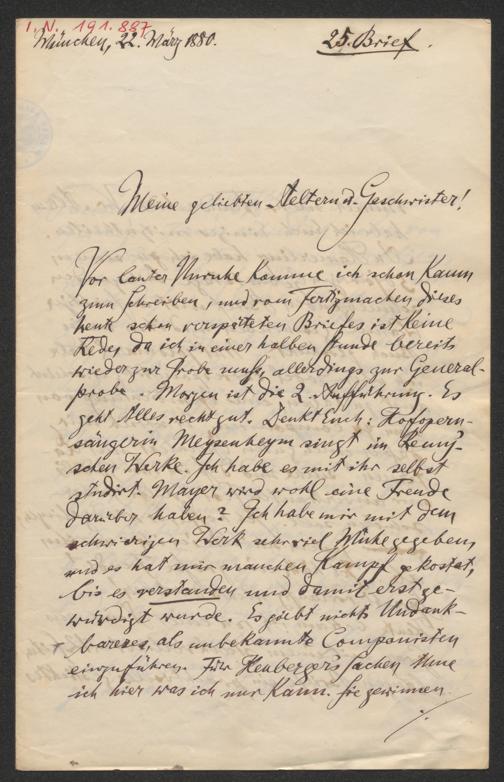 I. N. 191.887
München, 22. März 1880.
25. Brief.
Meine geliebten Aeltern u. Geschwister!
Vor lauter Unruhe komme ich schon kaum
zum Schreiben, und vom Fertigmachen dieses
heute schon verspäteten Briefes ist keine
Rede, da ich in einer halben Stunde bereits
wieder zur Probe muß, allerdings zur General-
probe. Morgen ist die 2. Aufführung. Es
geht Alles recht gut. Denkt Euch: Hofopern-
sängerin Meysenheym singt im
schen Werke. Ich habe es mit ihr selbst
studirt. Mayer wird wohl eine Freude
darüber haben? Ich habe mir mit dem
schwierigen Werk sehr viel Mühe gegeben,
und es hat mir manchen Kampf gekostet,
bis es verstanden und damit erst ge-
würdigt wurde. Es giebt nichts Undank-
bareres, als unbekannte Componisten
einzuführen. Für Heubergers Sachen thue
ich hier was ich nur kann. Sie gewinnen
./.